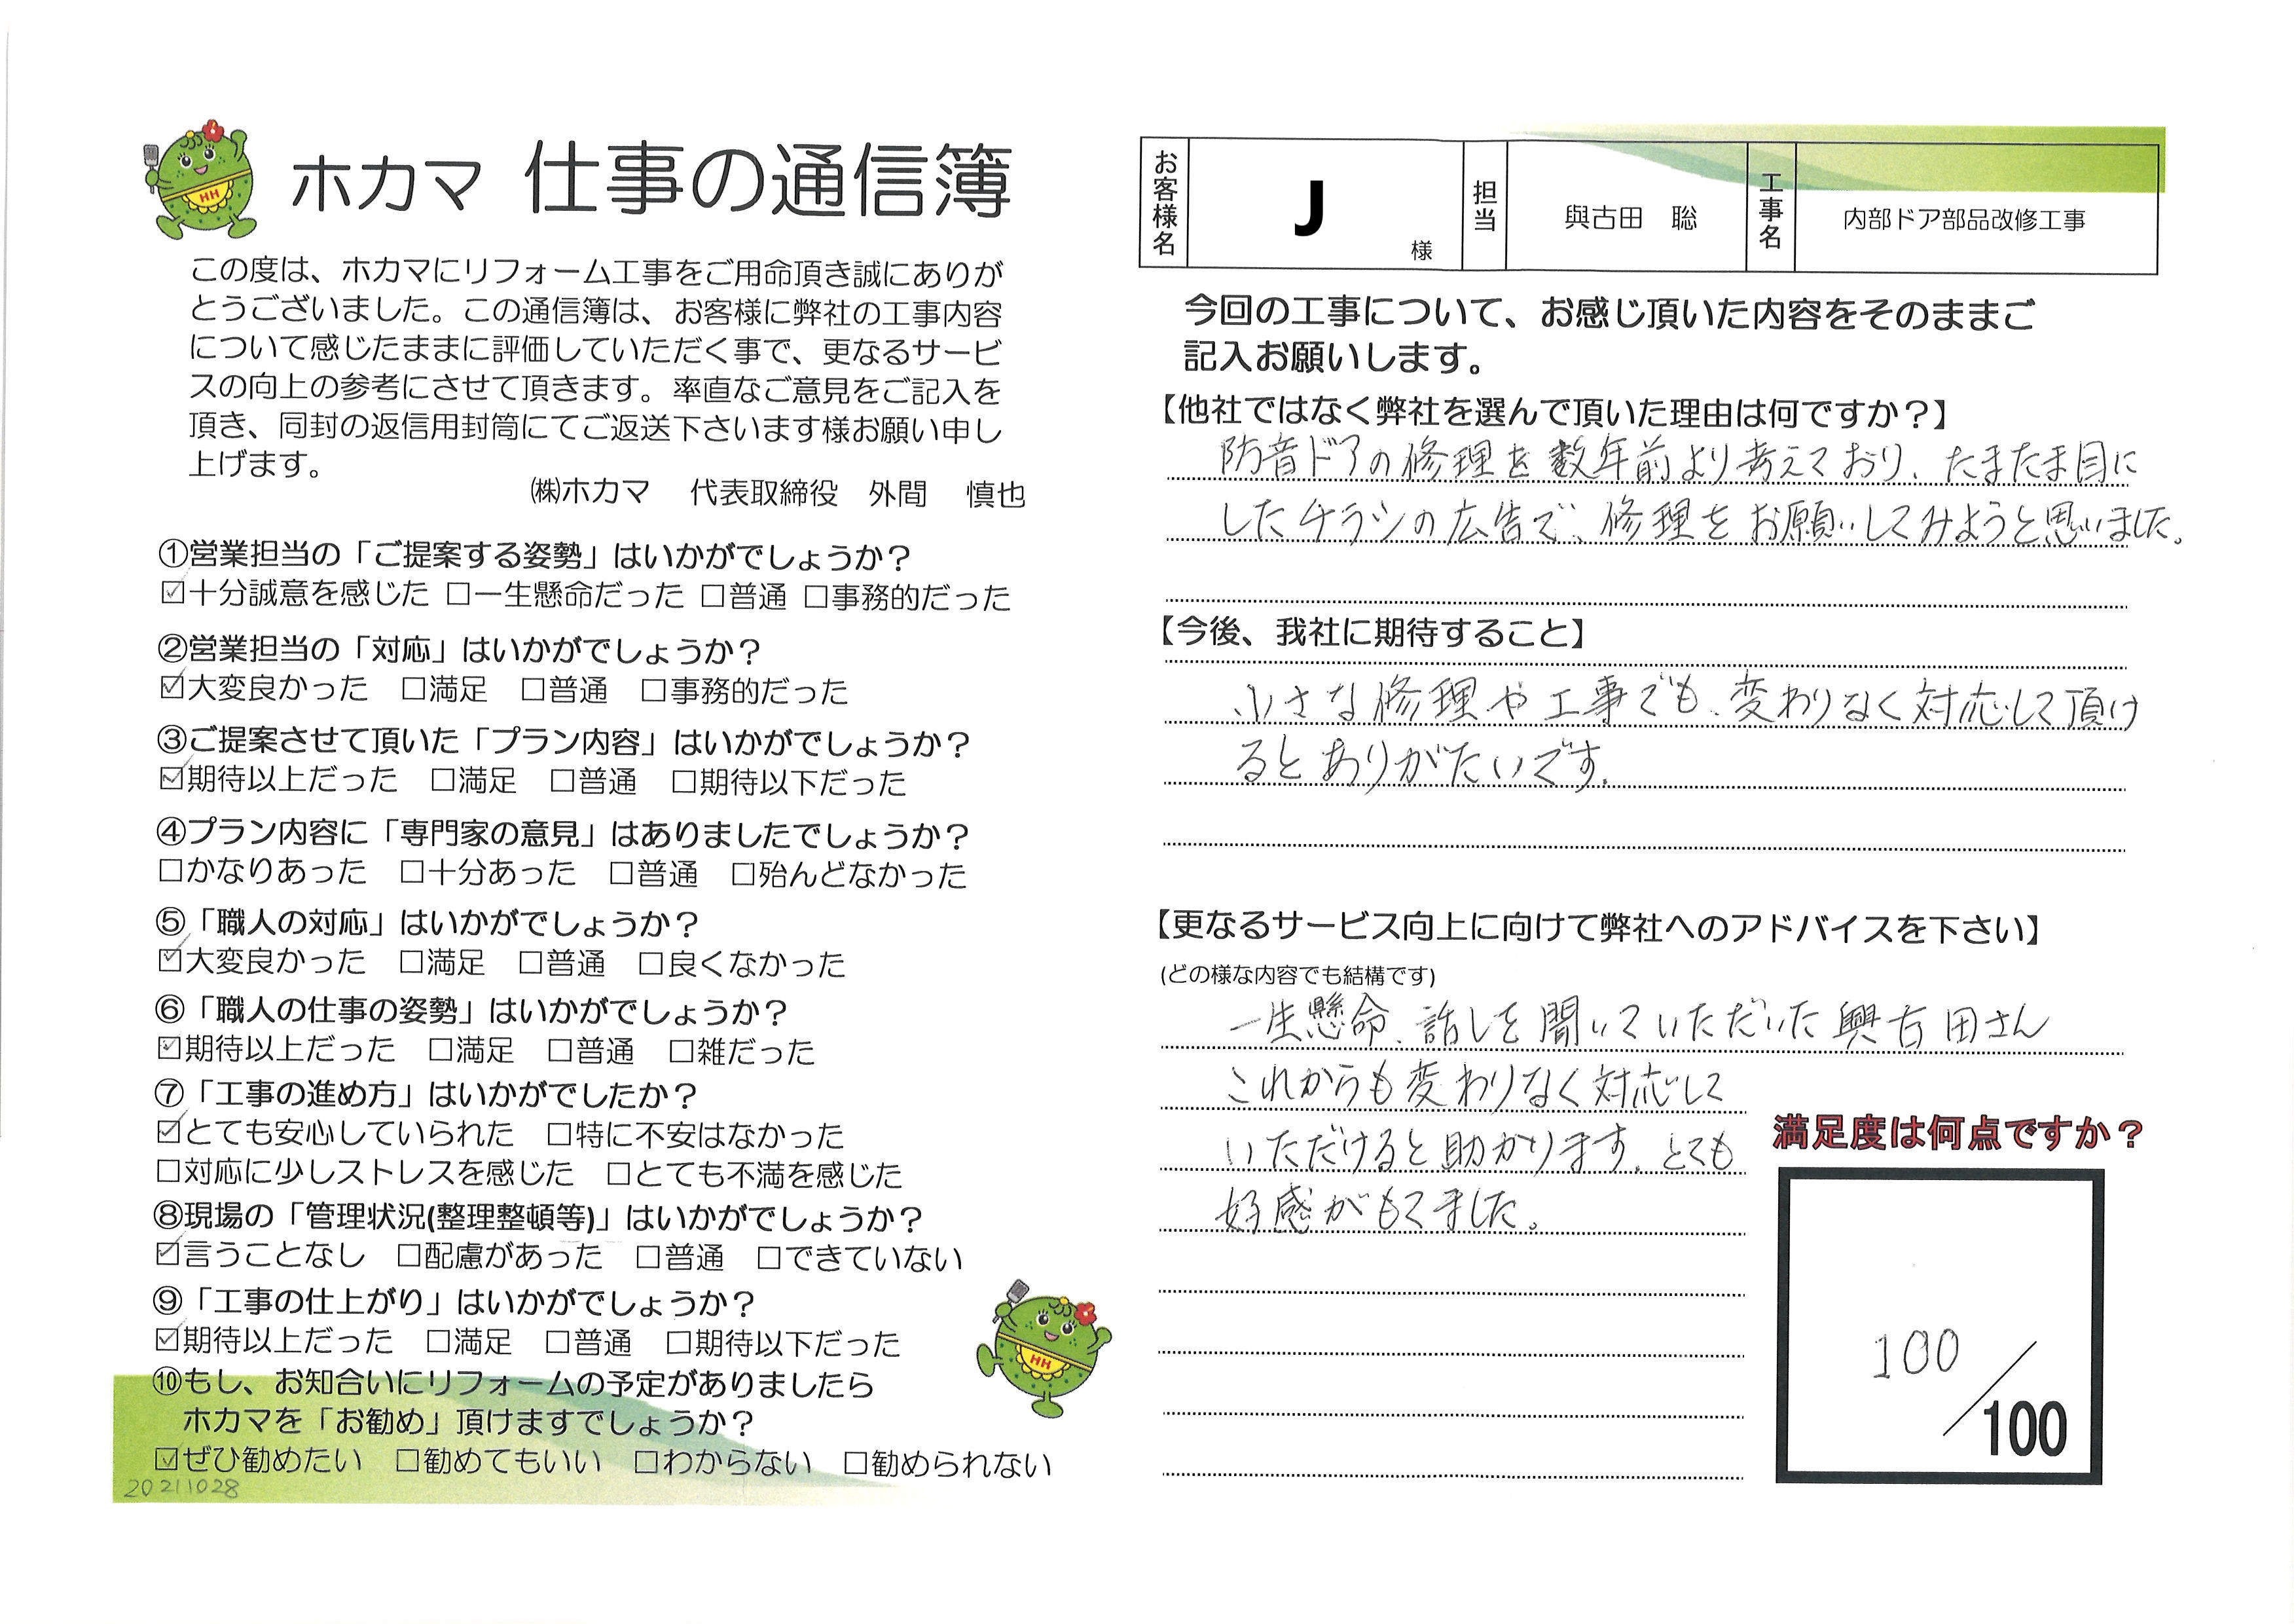 ホカマ 仕事の通信簿
この度は、ホカマにリフォーム工事をご用命頂き誠にありが
とうございました。この通信簿は、お客様に弊社の工事内容
について感じたままに評価していただく事で、更なるサービ
スの向上の参考にさせて頂きます。率直なご意見をご記入を
頂き、同封の返信用封筒にてご返送下さいます様お願い申し
上げます。
㈱ホカマ 代表取締役 外間 慎也
①営業担当の「ご提案する姿勢」はいかがでしょうか？
☑十分誠意を感じた □一生懸命だった □普通 □事務的だった
②営業担当の「対応」はいかがでしょうか？
☑大変良かった □満足 □普通 □事務的だった
③ご提案させて頂いた「プラン内容」はいかがでしょうか？
☑期待以上だった □満足 □普通 □期待以下だった
④プラン内容に「専門家の意見」はありましたでしょうか？
□かなりあった □十分あった □普通 □殆んどなかった
⑤「職人の対応」はいかがでしょうか？
☑大変良かった □満足 □普通 □良くなかった
⑥「職人の仕事の姿勢」はいかがでしょうか？
☑期待以上だった □満足 □普通 □雑だった
⑦「工事の進め方」はいかがでしたか？
☑とても安心していられた □特に不安はなかった
□対応に少しストレスを感じた □とても不満を感じた
⑧現場の「管理状況(整理整頓等)」はいかがでしょうか？
☑言うことなし □配慮があった □普通 □できていない
⑨「工事の仕上がり」はいかがでしょうか？
☑期待以上だった □満足 □普通 □期待以下だった
⑩もし、お知合いにリフォームの予定がありましたら
ホカマを「お勧め」頂けますでしょうか？
☑ぜひ勧めたい □勧めてもいい □わからない □勧められない
20211028
HH
HH
お客様名 J 様 担当 與古田 聡 工事名 内部ドア部品改修工事
今回の工事について、お感じ頂いた内容をそのままご
記入お願いします。
【他社ではなく弊社を選んで頂いた理由は何ですか？】
防音ドアの修理を数年前より考えており、たまたま目に
したチラシの広告で、修理をお願いしてみようと思いました。
【今後、我社に期待すること】
小さな修理や工事でも、変わりなく対応して頂け
るとありがたいです。
【更なるサービス向上に向けて弊社へのアドバイスを下さい】
(どの様な内容でも結構です)
一生懸命、話しを聞いていただいた與古田さん
これからも変わりなく対応して
いただけると助かります。とても
好感がもてました。
満足度は何点ですか？
100／100